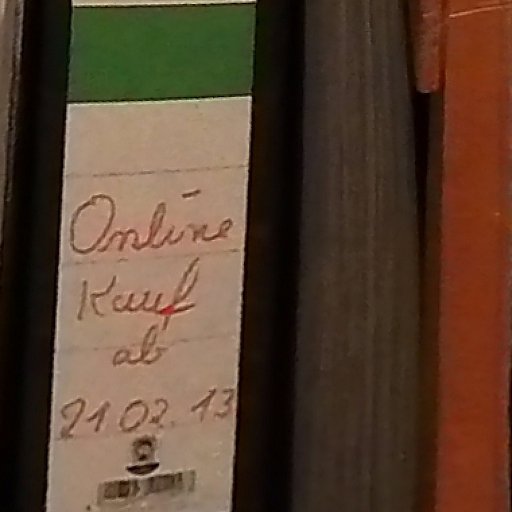 Online
Kauf
ab
21 02. 13